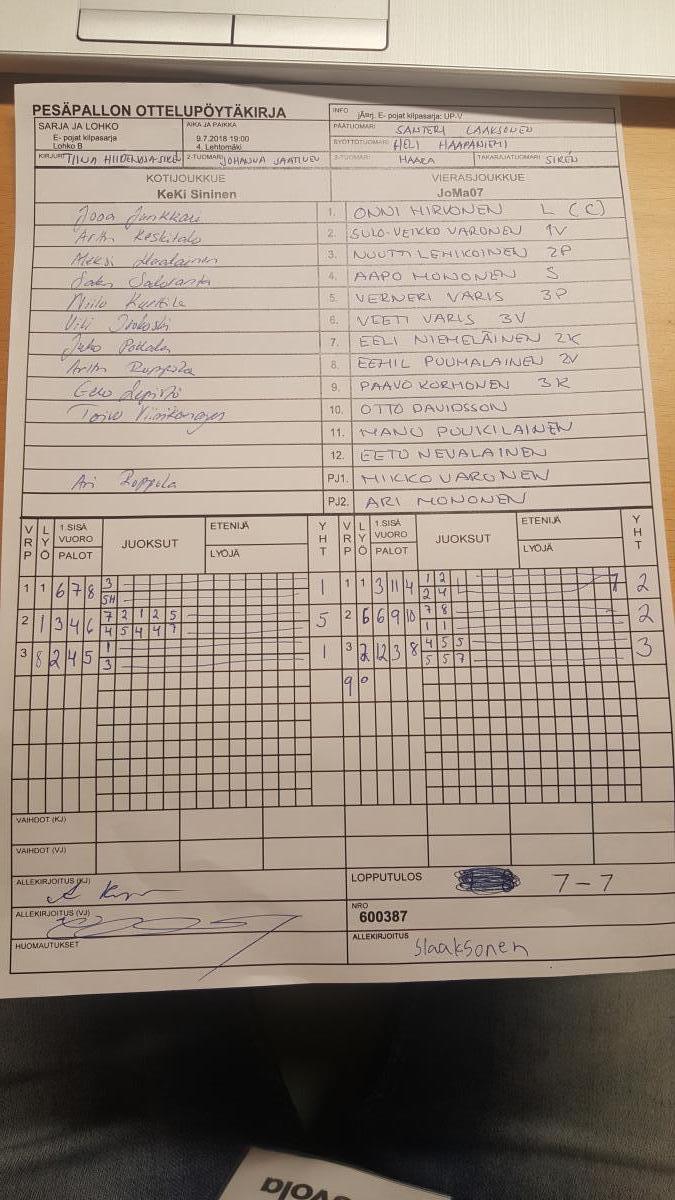 PESÄPALLON OTTELUPÖYTÄKIRJA
INFO jÄrj. E- pojat kilpasarja: UP-V
SARJA JA LOHKO
E- pojat kilpasarja
Lohko B
AIKA JA PAIKKA
9.7.2018 19:00
4. Lehtomäki
PÄÄTUOMARI SANTERI LAAKSONEN
SYÖTTÖTUOMARI HELI HAAPANIEMI
KIRJURI TIINA 2-TUOMARI JOHANNA JAATINEN 3-TUOMARI HAARA TAKARAJATUOMARI SIREN
KOTIJOUKKUE
KeKi Sininen
VIERASJOUKKUE
JoMa07
Joona Junkkari 1. ONNI HIRVONEN L (C)
Arttu Keskitalo 2. SULO-VEIKKO VARONEN 1V
3. NUUTTI LEHIKOINEN 2P
4. AAPO MONONEN S
5. VERNERI VARIS 3P
Vili 6. VEETI VARIS 3V
Juho 7. EELI NIEMELÄINEN 2K
Arttu Roppola 8. EEMIL PUUMALAINEN 2V
9. PAAVO KORHONEN 3K
Toivo 10. OTTO DAVIDSSON
11. MANU PUUKILAINEN
12. EETU NEVALAINEN
Ari Roppola PJ1. MIKKO VARONEN
PJ2. ARI MONONEN
VRP LYÖ 1.SISÄ VUORO PALOT JUOKSUT ETENIJÄ LYÖJÄ YHT VRP LYÖ 1.SISÄ VUORO PALOT JUOKSUT ETENIJÄ LYÖJÄ YHT
1 1 6 7 8 3 1 1 1 3 11 4 1 2 2
5H 2 4
2 1 3 4 6 7 2 1 2 5 5 2 6 6 9 10 7 8 2
4 5 4 4 7 1 1
3 8 2 4 5 1 1 3 2 12 3 8 4 5 5 3
3 5 5 7
9 0
VAIHDOT (KJ)
VAIHDOT (VJ)
ALLEKIRJOITUS (KJ)
LOPPUTULOS 7-7
ALLEKIRJOITUS (VJ)
NRO
600387
HUOMAUTUKSET
ALLEKIRJOITUS
Slaaksonen
vola